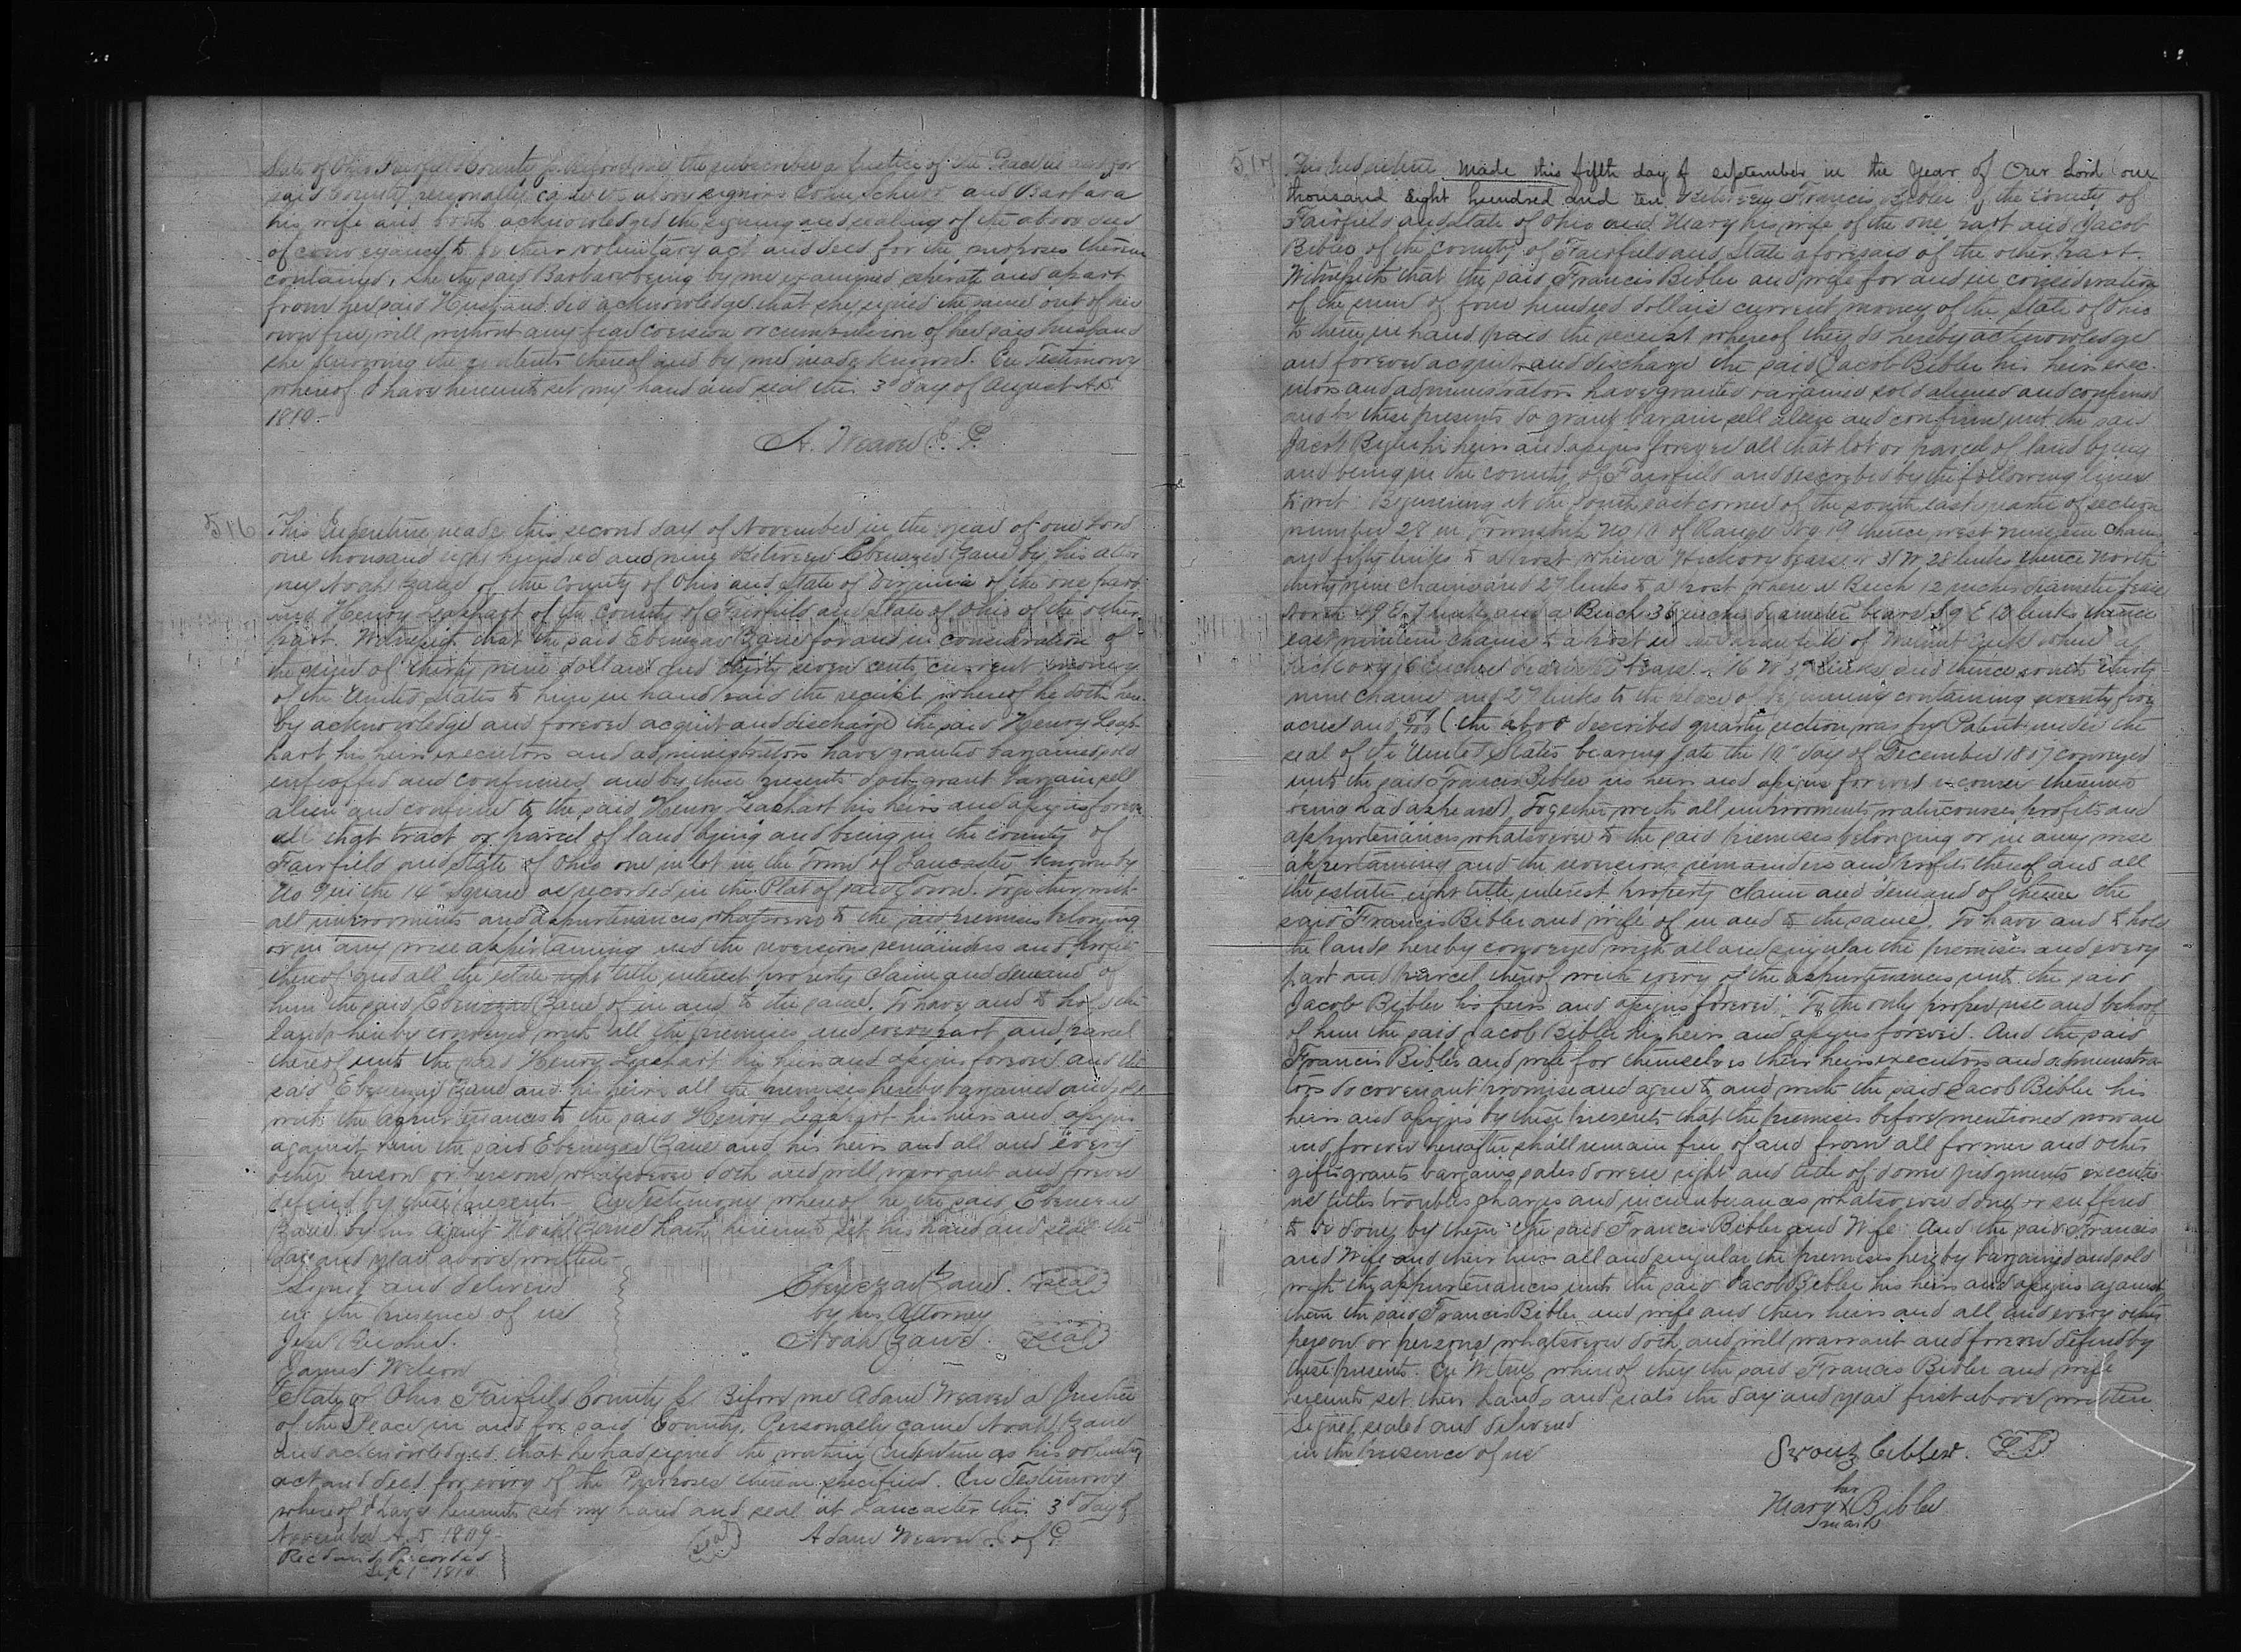 State of Ohio Fairfield County ss Before me the subscriber a Justice of the Peace in and for
said County personally came the above signors John Schurr and Barbara
his wife and both acknowledged the signing and sealing of the above deed
of conveyance to be their voluntary act and deed for the purposes therein
contained, she the said Barbara being by me examined seperate and apart
from her said Husband did acknowledge that she signed the same out of her
own free will without any fear coersion or compulsion of her said husband
she knowing the contents thereof and by me made known. In Testimony
whereof I have hereunto set my hand and seal this 3d day of August A.D.
1810.
A. Weaver J. P.
516
This Indenture made this second day of November in the year of our Lord
one thousand eight hundred and nine Between Ebenezer Zane by his attor
ney Noah Zane of the County of Ohio and State of Virginia of the one part
and Henry Leaphart of the County of Fairfield and State of Ohio of the other
part. Witnesseth that the said Ebenezer Zane for and in consideration of
the sum of thirty nine dollars and thirty seven cents current money
of the United States to him in hand paid the receipt whereof he doth here
by acknowledge and forever acquit and discharge the said Henry Leap-
hart his heirs executors and administrators have granted bargained sold
enfeoffed and confirmed and by these presents doth grant bargain sell
alien and confirm to the said Henry Leaphart his heirs and assigns forever
all that tract or parcel of land lying and being in the county of
Fairfield and State of Ohio one in lot in the Town of Lancaster known by
No 9 in the 14th Square as recorded in the Plat of said Town. Together with
all improvements and appurtenances whatsoever to the said premises belonging
or in any wise appertaining and the reversions remainders and profits
thereof and all the estate right title interest property claim and demand of
him the said Ebenezer Zane of in and to the same. To have and to hold the
lands hereby conveyed with all the premises and every part and parcel
thereof unto the said Henry Leaphart his heirs and assigns forever and the
said Ebenezer Zane and his heirs all the premises hereby bargained and sold
with the appurtenances to the said Henry Leaphart his heirs and assigns
against him the said Ebenezer Zane and his heirs and all and every
other person or persons whatsoever doth and will warrant and forever
defend by these presents. In testimony whereof he the said Ebenezer
Zane by his agent Noah Zane hath hereunto set his hand and seal the
day and year above written
Signed and delivered
in the presence of us
Ebenezer Zane. seal
by his Attorney
Noah Zane. seal
James Wilson
State of Ohio Fairfield County ss Before me Adam Weaver a Justice
of the Peace in and for said County, Personally came Noah Zane
and acknowledged that he had signed the within Indenture as his voluntary
act and deed for every of the Purposes therein specified. In Testimony
whereof I have hereunto set my hand and seal at Lancaster this 3d day of
November A.D. 1809
seal Adam Weaver J. of P.
Recd and Recorded
Sept 1st 1810
517
This Indenture made this fifth day of september in the Year of Our Lord one
thousand Eight hundred and ten Between Francis Bibler of the county of
Fairfield and State of Ohio and Mary his wife of the one part and Jacob
Bibler of the County of Fairfield and State aforesaid of the other Part.
Witnesseth that the said Francis Bibler and wife for and in consideration
of the sum of four hundred dollars current money of the State of Ohio
to them in hand paid the receipt whereof they do hereby acknowledge
and forever acquit and discharge the said Jacob Bibler his heirs exec-
utors and administrators have granted bargained sold aliened and confirmed
and by these presents do grant bargain sell alien and confirm unto the said
Jacob Bibler his heirs and assigns forever all that lot or parcel of land lying
and being in the county of Fairfield and described by the following lines
to wit Beginning at the south east corner of the south east quarter of section
number 28 in Township No of Range No 19 thence west nineteen chains
and fifty links to a post where a Hickory bears 31 W 28 links thence North
thirty nine chains and 27 links to a post where a Beech 12 inches diameter bears
North 9 E 7 links and a Beech 36 inches diameter bears S 9 E 18 links thence
east nineteen chains to a post in of Walnut Creek where a
Hickory 16 inches bears 16 W 39 links and thence south thirty
nine chains and 27 links to the place of beginning containing seventy five
acres and (the above described quarter section was by Patent under the
seal of the United States bearing date the 10th day of December 1807 conveyed
unto the said Francis Bibler his heirs and assigns forever recourse thereunto
being had appears) Together with all improvements watercourses profits and
appurtenances whatsoever to the said premises belonging or in any wise
appertaining and the reversions remainders and profits thereof and all
the estate right title interest property claim and demand of them the
said Francis Bibler and wife of in and to the same, To have and to hold
the lands hereby conveyed with all and singular the premises and every
part and parcel thereof with every of the appurtenances unto the said
Jacob Bibler his heirs and assigns forever. To the only proper use and behoof
of him the said Jacob Bibler his heirs and assigns forever. And the said
Francis Bibler and wife for themselves their heirs executors and administra-
tors do covenant promise and agree to and with the said Jacob Bibler his
heirs and assigns by these presents that the premises before mentioned now are
and forever hereafter shall remain free of and from all former and other
gifts grants bargains sales dowers right and title of dower judgments executi-
ns titles troubles charges and incumberances whatsoever done or suffered
to be done by them the said Francis Bibler and Wife. And the said Francis
and Wife and their heirs all and singular the premises hereby bargained and sold
with the appurtenances unto the said Jacob Bibler his heirs and assigns against
them the said Francis Bibler and wife and their heirs and all and every other
person or persons whatsoever doth and will warrant and forever defend by
these presents. In Witness whereof they the said Francis Bibler and wife
hereunto set their hands and seals the day and year first above written
Signed sealed and delivered
in the presence of us
L.S.
her
Mary X Bibler
mark